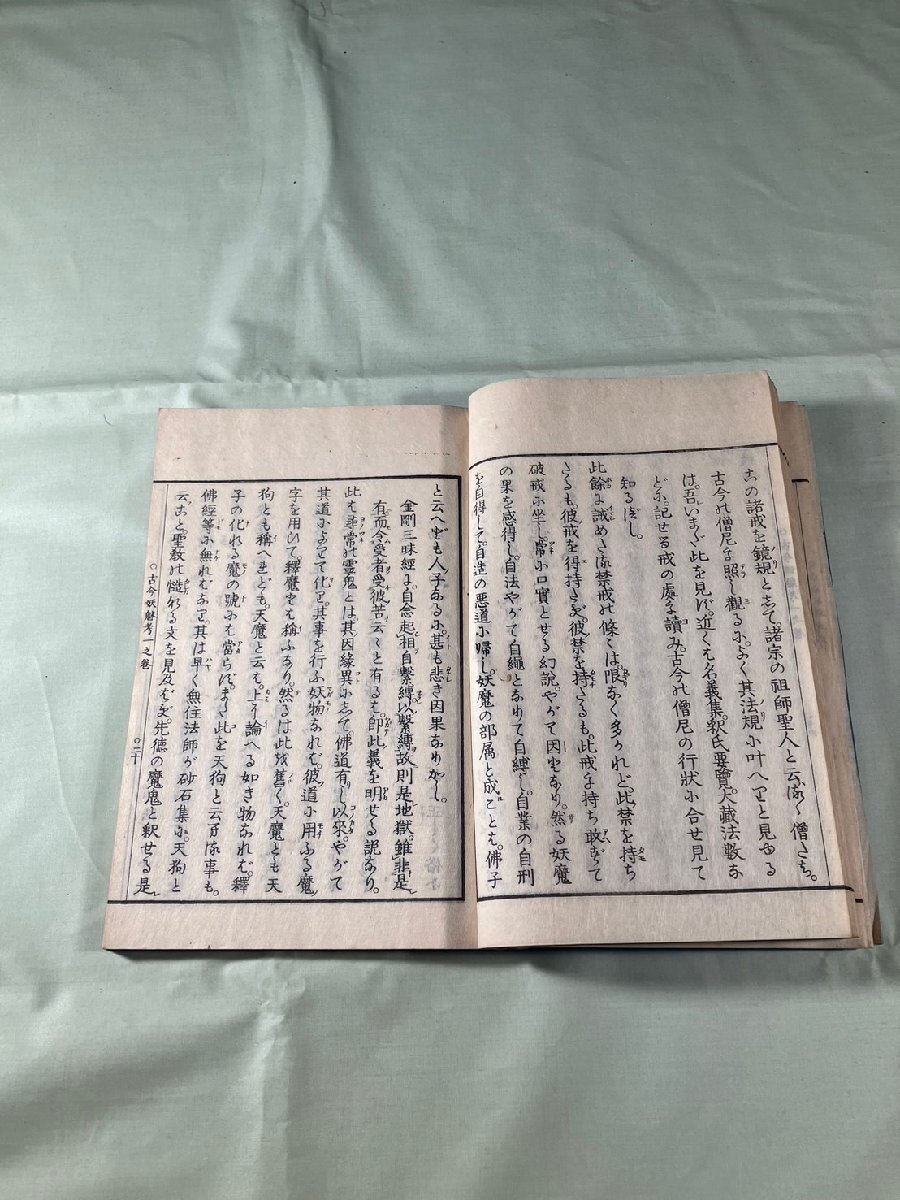 の諸戒を鏡規として諸宗の祖師聖人と云るゝ僧たち。
古今の僧尼を照し觀るに。よく其法規に叶へりと見ゆる
は。吾いまだ此を見ず。近くも名義集。釈氏要覽。大藏法數な
どに記せる戒の處を讀み。古今の僧尼の行狀に合せ見て
知るべし。
此餘に誡めたる禁戒の條々は。限なく多かれど此禁を持ち
さるも彼戒を得持さず。彼禁を持さるも。此戒を持ち敢ずて
破戒に坐し。常に口實とせる幻說やがて因となり。然る妖魔
の果を感得し。自法やがて自繩となりて自縛し。自業の自刑
を自得して。自造の悪道に歸し。妖魔の部属と成ことも。佛子
と云へども人子なるに。甚も悲き因果なりかし。
金剛三昧經に。自念起相自繫縛。以繫縛故則是地獄。雖非是
有。而令受者受彼苦云々と有るも。即此義を明せる説なり。
此も尋常の靈鬼とは。其因緣異にして。佛道有し以來。やがて
其道によりて化り。其事を行ふ妖物なれば。彼道に用ふる魔
字を用ひて。釋魔とも稱ふなり。然るは此を舊く。天魔とも天
狗とも稱へれども。天魔と云も。上に論へる如き物なれば。釋
子の化れる魔の號にも當らず。また此を天狗と云事も。
佛經等に無れば なり。其は早く無住法師が砂石集に。天狗と
云こと。聖敎の慥なる文を見及ばず。先德の魔鬼と釈せる是
○古今妖魅考一之卷
○二十